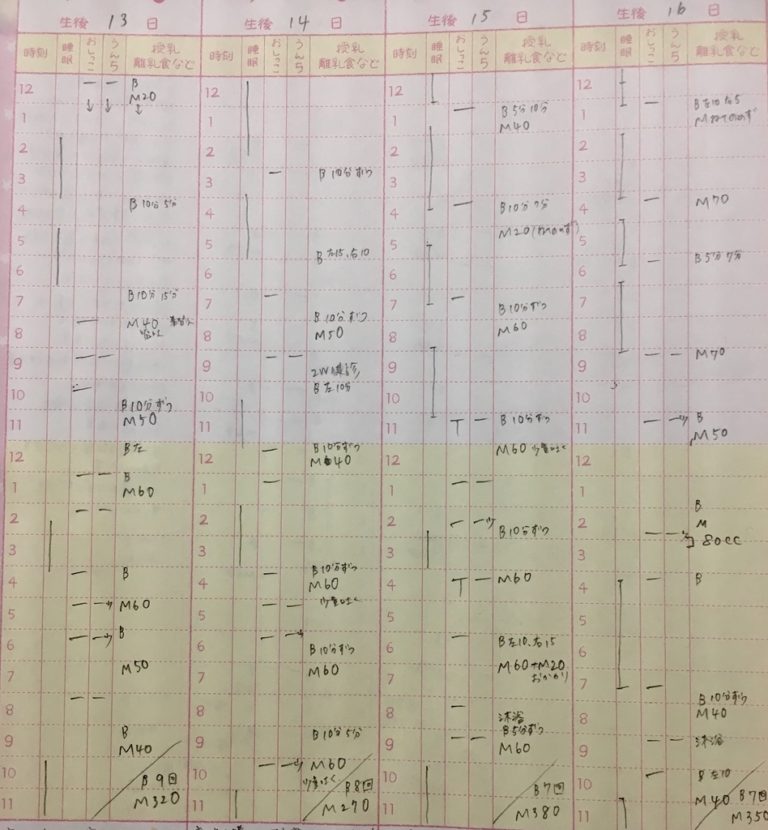 生後 13 日
時刻 睡眠 おしっこ うんち 授乳 離乳食など
12 B
M20
1
2
3
4 B 10分 5分
5
6
7 B 10分 15分
8 M40
9
10
11 B 10分ずつ
M50
12 B 左
1 B
M60
2
3
4 B
5 M60
6 B
7 M50
8
9 B
M40
10 B 9回
11 M320
生後 14 日
時刻 睡眠 おしっこ うんち 授乳 離乳食など
12
1
2
3 B 10分ずつ
4
5 B 左15、右10
6
7 B 10分ずつ
8 M50
9 2W健診
10 B 左10分
11
12 B 10分ずつ
M40
1
2
3
4 B 10分ずつ
M60
5 少量はく
6 B 10分ずつ
7 M60
8
9 B 10分 5分
10 M60
少量はく
B 8回
11 M270
生後 15 日
時刻 睡眠 おしっこ うんち 授乳 離乳食など
12
1 B 5分 10分
M40
2
3
4 B 10分 7分
5 M20
6
7 B 10分ずつ
8 M60
9
10
11 B 10分ずつ
12 M60 少量はく
1
2 B 10分ずつ
3
4 M60
5
6 B 左10、右15
7 M60+M20
おかわり
8 沐浴
B 5分ずつ
9 M60
10 B 7回
11 M380
生後 16 日
時刻 睡眠 おしっこ うんち 授乳 離乳食など
12 B 左10 右5
1 M
2
3
4 M70
5
6 B 5分 7分
7
8
9 M70
10
11 B
M50
12
1
2 B
M
3 80cc
4 B
5
6
7 B 10分ずつ
8 M40
9 沐浴
10 B 左10
M40 B 7回
11 M350